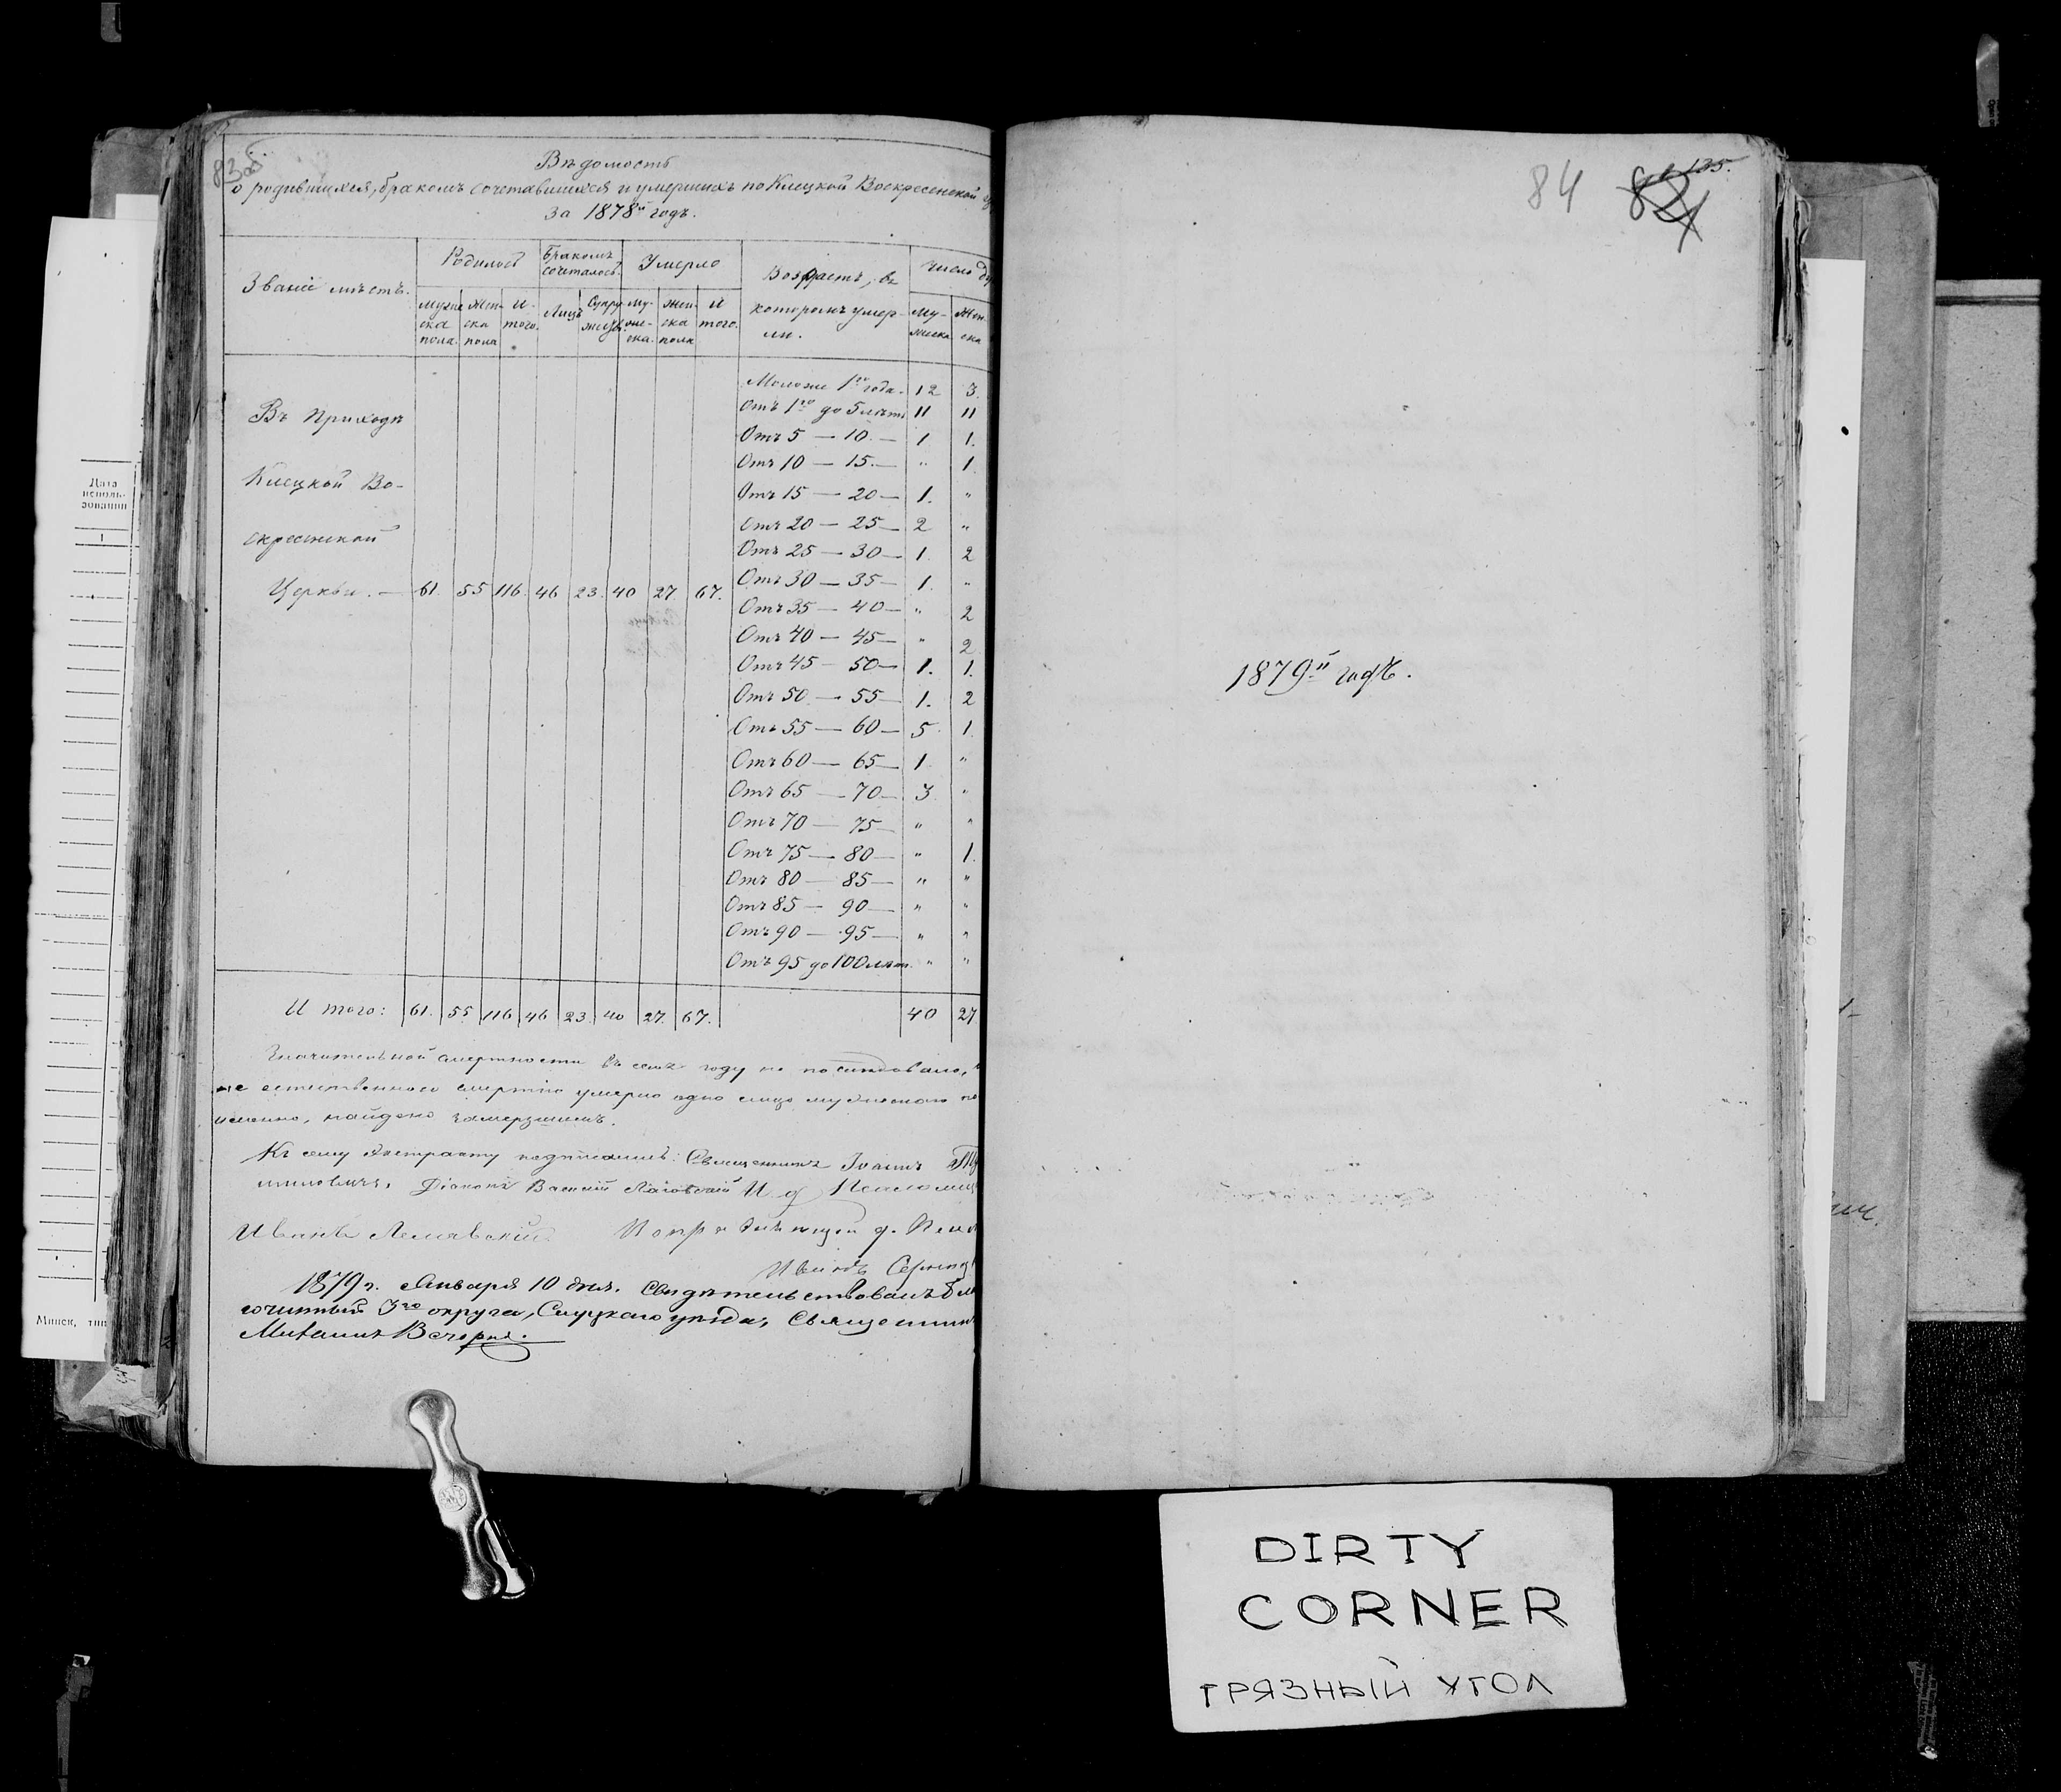 83об
Вѣдомость
о родившихся, бракомъ сочетавшихся и умершихъ по Клецкой Воскресенской
за 1878й годъ.
Званіе мѣстъ.
Родилось
Бракомъ сочеталось.
Умерло
Возрастъ, въ которомъ умерли.
Число
Мужеска пола. Женска пола Итого. Лицъ Супружествъ. Мужеска. Женска пола Итого. Мужеска Женска
Моложе 1го года. 12 3.
Отъ 1го до 5 лѣтъ 11 11
Въ Приходѣ
Отъ 5 — 10. — 1 1.
Отъ 10 — 15. — „ 1
Клецкой Во-
Отъ 15 — 20 — 1. „
Отъ 20 — 25 — 2 „
скресенской
Отъ 25 — 30 — 1. 2
Отъ 30 — 35 — 1. „
Церкви. — 61. 55 116. 46 23. 40 27. 67.
Отъ 35 — 40 — „ 2
Отъ 40 — 45 — „ 2
Отъ 45 — 50 — 1. 1.
Отъ 50 — 55 — 1. 2
Отъ 55 — 60 — 5. 1.
Отъ 60 — 65 — 1. „
Отъ 65 — 70 — 3 „
Отъ 70 — 75 — „ „
Отъ 75 — 80 — „ 1.
Отъ 80 — 85 — „ „
Отъ 85 — 90 — „ „
Отъ 90 — 95 — „ „
Отъ 95 до 100 лѣтъ. „ „
И того: 61. 55. 116 46 23. 40 27. 67. 40 27
Значительной смертности въ семъ году не послѣдовало,
не естественною смертію умерло одно лицо мужескаго
именно, найдено замерзшимъ.
Къ сему экстракту подписались: Священникъ Іоаннъ
Діаконъ Василій И. д
Иванъ
Иванъ
1879 г. Января 10 дня. Свидѣтельствовалъ Бла
гочинный 3го округа, Слуцкаго уѣзда, Священникъ
Михаилъ Вечерко.
84 135.
1879й годъ.
Дата
исполь-
зования
Минск, тип
DIRTY
CORNER
ГРЯЗНЫЙ УГОЛ